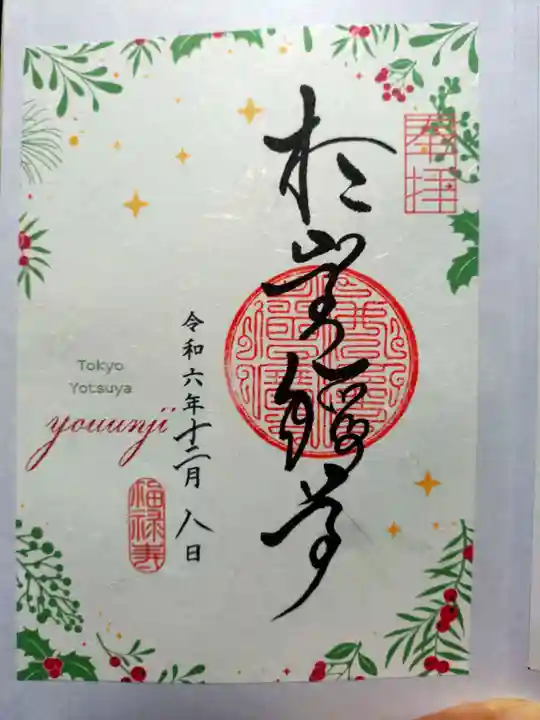 奉拝
於岩稲荷
令和六年十二月八日
Tokyo
Yotsuya
youunji
福禄寿